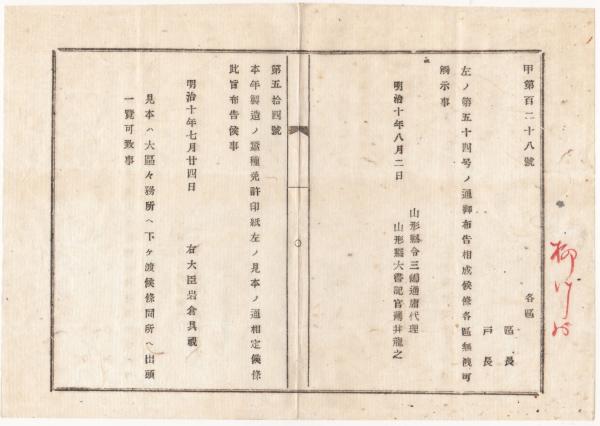 甲第百二十八號
各區
區長
戸長
左ノ第五十四号ノ通御布告相成候條各區無洩可
觸示事
明治十年八月二日
山形縣令三島通庸代理
山形縣大書記官薄井龍之
第五拾四號
本年製造ノ蠶種免許印紙左ノ見本ノ通相定候條
此旨布告候事
明治十年七月廿四日
右大臣岩倉具視
見本ハ大區々務所ヘ下ケ渡候條同所ヘ出頭
一覽可致事